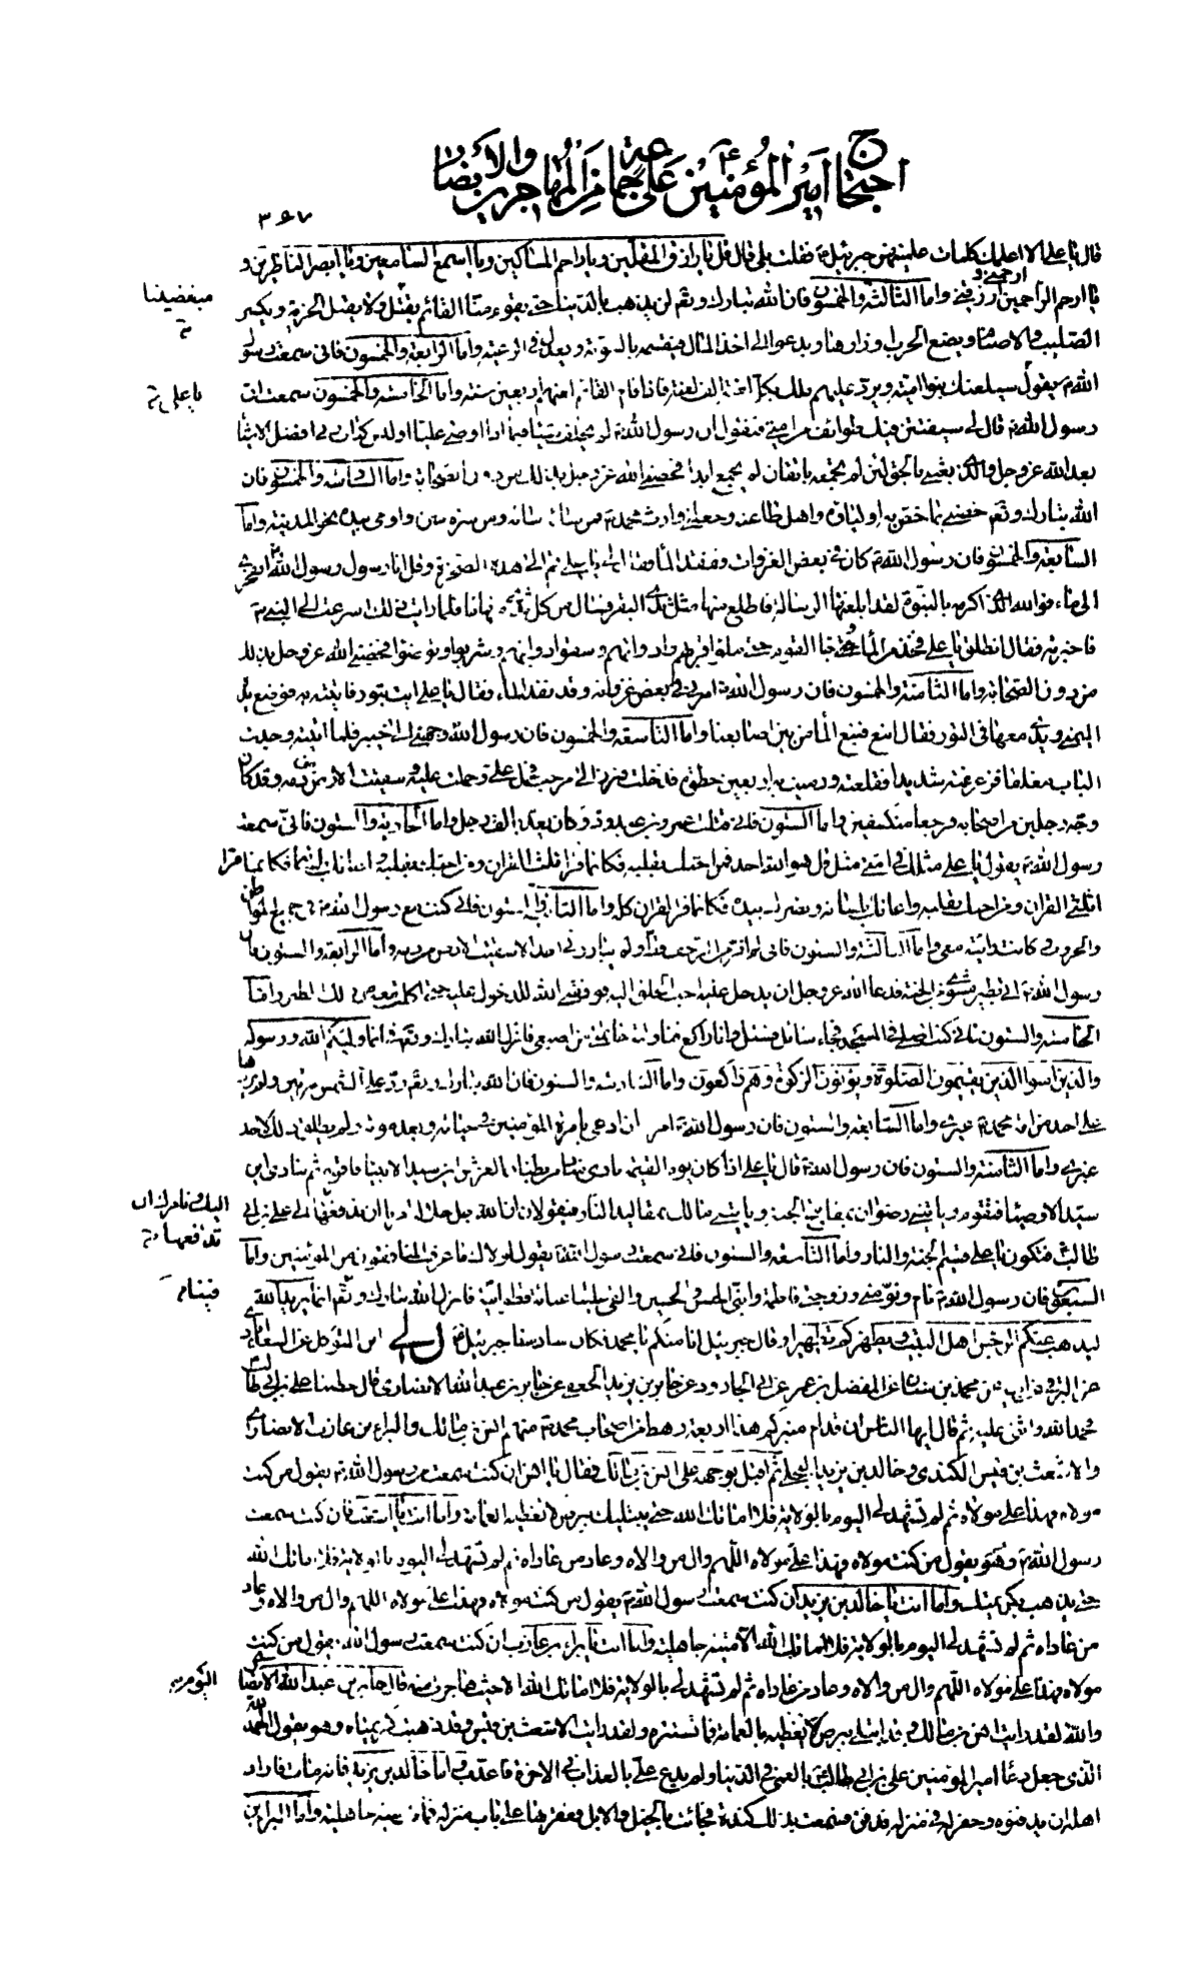 احتجاج امير المؤمنين ع على جماعة من المهاجرين والأنصار
٣٦٧
قال يا على الا اعلمك كلمات علمنيهن جبرئيل فقلت بلى قال قل يا رازق المقلين ويا راحم المساكين ويا اسمع السامعين ويا ابصر الناظرين و
يا ارحم الراحمين ارحمنى و ارزقنى واما الثالثة والخمسون فان الله تبارك وتعالى لن يذهب بالدنيا حتى يقوم منا القائم يقتل مبغضينا ولا يقبل الجزية ويكسر
مبغضينا
الصليب والاصنام ويضع الحرب اوزارها ويدعو الى اخذ المال فيقسمه بالسوية ويعدل فى الرعية واما الرابعة والخمسون فانى سمعت رسول
الله يقول سيلعنك بنو امية ويرد عليهم ملك بكل لعنة الف لعنة فاذا قام القائم لعنهم اربعين سنة واما الخامسة والخمسون سمعت ان
يا على
رسول الله قال لى سيفتتن فيك طوائف من امتى فيقول ان رسول الله لم يخلف شيئا فبما ذا اوصى عليا اوليس كتاب ربى افضل الاشياء
بعد الله عز وجل والذى بعثنى بالحق لئن لم تجمعه باتقان لم يجمع ابدا فخصنى الله عز وجل بذلك من دون الصحابة واما السادسة والخمسون فان
الله تبارك وتعالى خصنى بما خص به اولياءه واهل طاعته وجعلنى وارث محمد فمن ساءه ساءه ومن سره سره واومى بيده نحو المدينة واما
السابعة والخمسون فان رسول الله كان فى بعض الغزوات ففقد الماء فقال لى يا على قم الى هذه الصخرة وقل انا رسول رسول الله انفجرى
لى ماء فوالله الذى اكرمه بالنبوة لقد ابلغتها الرسالة فاطلع منها مثل ثدى البقر فسال من كل ثدى منها ماء فلما رايت ذلك اسرعت الى النبى
فاخبرته فقال انطلق يا على فخذ من الماء وجاء القوم حتى ملؤا قربهم واداواتهم وسقوا دوابهم وشربوا وتوضؤا فخصنى الله عز وجل بذلك
من دون الصحابة واما الثامنة والخمسون فان رسول الله امرنى فى بعض غزواته وقد نفد الماء فقال يا على ايت بتور فاتيته به فوضع يده
اليمنى ويدى معها فى التور فقال انبع فنبع الماء من بين اصابعنا واما التاسعة والخمسون فان رسول الله وجهنى الى خيبر فلما اتيته وجدت
الباب مغلقا فزعزعته شديدا فقلعته ورميت به اربعين خطوة فدخلت فبرز الى مرحب فحمل على وحملت عليه وسقيت الارض من دمه وقد كان
وجه رجلين من اصحابه فرجعا منكسفين واما الستون فانى قتلت عمرو بن عبد ود وكان يعد بالف رجل واما الحادية والستون فانى سمعت
رسول الله يقول يا على مثلك فى امتى مثل قل هو الله احد فمن احبك بقلبه فكانما قرأ ثلث القران ومن احبك بقلبه واعانك بلسانه فكانما قرأ
ثلثى القران ومن احبك بقلبه واعانك بلسانه ونصرك بيده فكانما قرأ القران كله واما الثانية والستون فانى كنت مع رسول الله فى جميع المواطن
والحروب وكانت رايته معى واما الثالثة والستون فانى لم افر من الزحف قط ولم يبارزنى احد الا سقيت الارض من دمه واما الرابعة والستون فان
رسول الله اتى بطير مشوى من الجنة فدعا الله عز وجل ان يدخل عليه احب خلقه اليه فوفقنى الله للدخول عليه حتى اكلت معه من ذلك الطير واما
الخامسة والستون فانى كنت اصلى فى المسجد فجاء سائل فسئل وانا راكع فناولته خاتمى من اصبعى فانزل الله تبارك وتعالى انما وليكم الله ورسوله
والذين آمنوا الذين يقيمون الصلوة ويؤتون الزكوة وهم راكعون واما السادسة والستون فان الله تبارك وتعالى رد على الشمس مرتين ولم يردها
على احد من امة محمد غيرى واما السابعة والستون فان رسول الله امر ان ادعى بامرة المؤمنين فى حياته وبعد موته ولم يطلق ذلك لاحد
غيرى واما الثامنة والستون فان رسول الله قال يا على اذا كان يوم القيمة نادى مناد من بطنان العرش اين سيد الانبياء فاقوم ثم ينادى اين
سيد الاوصياء فتقوم وياتينى رضوان بمفاتيح الجنة وياتينى مالك بمقاليد النار فيقولان ان الله جل جلاله امرنا ان ندفعها الى على بن ابى
اليك ونامرك ان
تدفعها
طالب فتكون يا على قسيم الجنة والنار واما التاسعة والستون فانى سمعت رسول الله يقول لولاك ما عرف المنافقون من المؤمنين واما
السبعون فان رسول الله نام ونومنى وزوجتى فاطمة وابنى الحسن والحسين والقى علينا عباءة قطوانية فانزل الله تبارك وتعالى انما يريد الله
فينا
ليذهب عنكم الرجس اهل البيت ويطهركم تطهيرا وقال جبرئيل انا منكم يا محمد فكان سادسنا جبرئيل لى ابن المتوكل عن السعدابادى
عن البرقى عن ابيه عن محمد بن سنان عن المفضل بن عمر عن ابى الجارود عن جابر بن يزيد الجعفى عن جابر بن عبد الله الانصارى قال خطبنا على بن ابى طالب
فحمد الله واثنى عليه ثم قال ايها الناس ان قدام منبركم هذا اربعة رهط من اصحاب محمد منهم انس بن مالك والبراء بن عازب الانصارى
والاشعث بن قيس الكندى وخالد بن يزيد البجلى ثم اقبل بوجهه على انس بن مالك فقال يا انس ان كنت سمعت من رسول الله يقول من كنت
مولاه فهذا على مولاه ثم لم تشهد لى اليوم بالولاية فلا اماتك الله حتى يبتليك ببرص لا تغطيه العمامة واما انت يا اشعث فان كنت سمعت
رسول الله وهو يقول من كنت مولاه فهذا على مولاه اللهم وال من والاه وعاد من عاداه ثم لم تشهد لى اليوم بالولاية فلا اماتك الله
حتى يذهب بكريمتيك واما انت يا خالد بن يزيد ان كنت سمعت رسول الله يقول من كنت مولاه فهذا على مولاه اللهم وال من والاه وعاد
من عاداه ثم لم تشهد لى اليوم بالولاية فلا اماتك الله الا ميتة جاهلية واما انت يا براء بن عازب ان كنت سمعت رسول الله يقول من كنت
مولاه فهذا على مولاه اللهم وال من والاه وعاد من عاداه ثم لم تشهد لى بالولاية فلا اماتك الله الا حيث هاجرت منه قال جابر بن عبد الله الانصارى
اليوم
والله لقد رايت انس بن مالك وقد ابتلى ببرص لا يغطيه بالعمامة فما تستره ولقد رايت الاشعث بن قيس وقد ذهبت كريمتاه وهو يقول الحمد لله
الذى جعل دعاء امير المؤمنين على بن ابى طالب بالعمى فى الدنيا ولم يدع على بالعذاب فى الاخرة فاعذب واما خالد بن يزيد فانه مات فاراد
اهله ان يدفنوه وحفر له فى منزله فدفن فسمعت بذلك كندة فجائت بالخيل والابل فعقرتها على باب منزله فمات ميتة جاهلية واما البراء بن